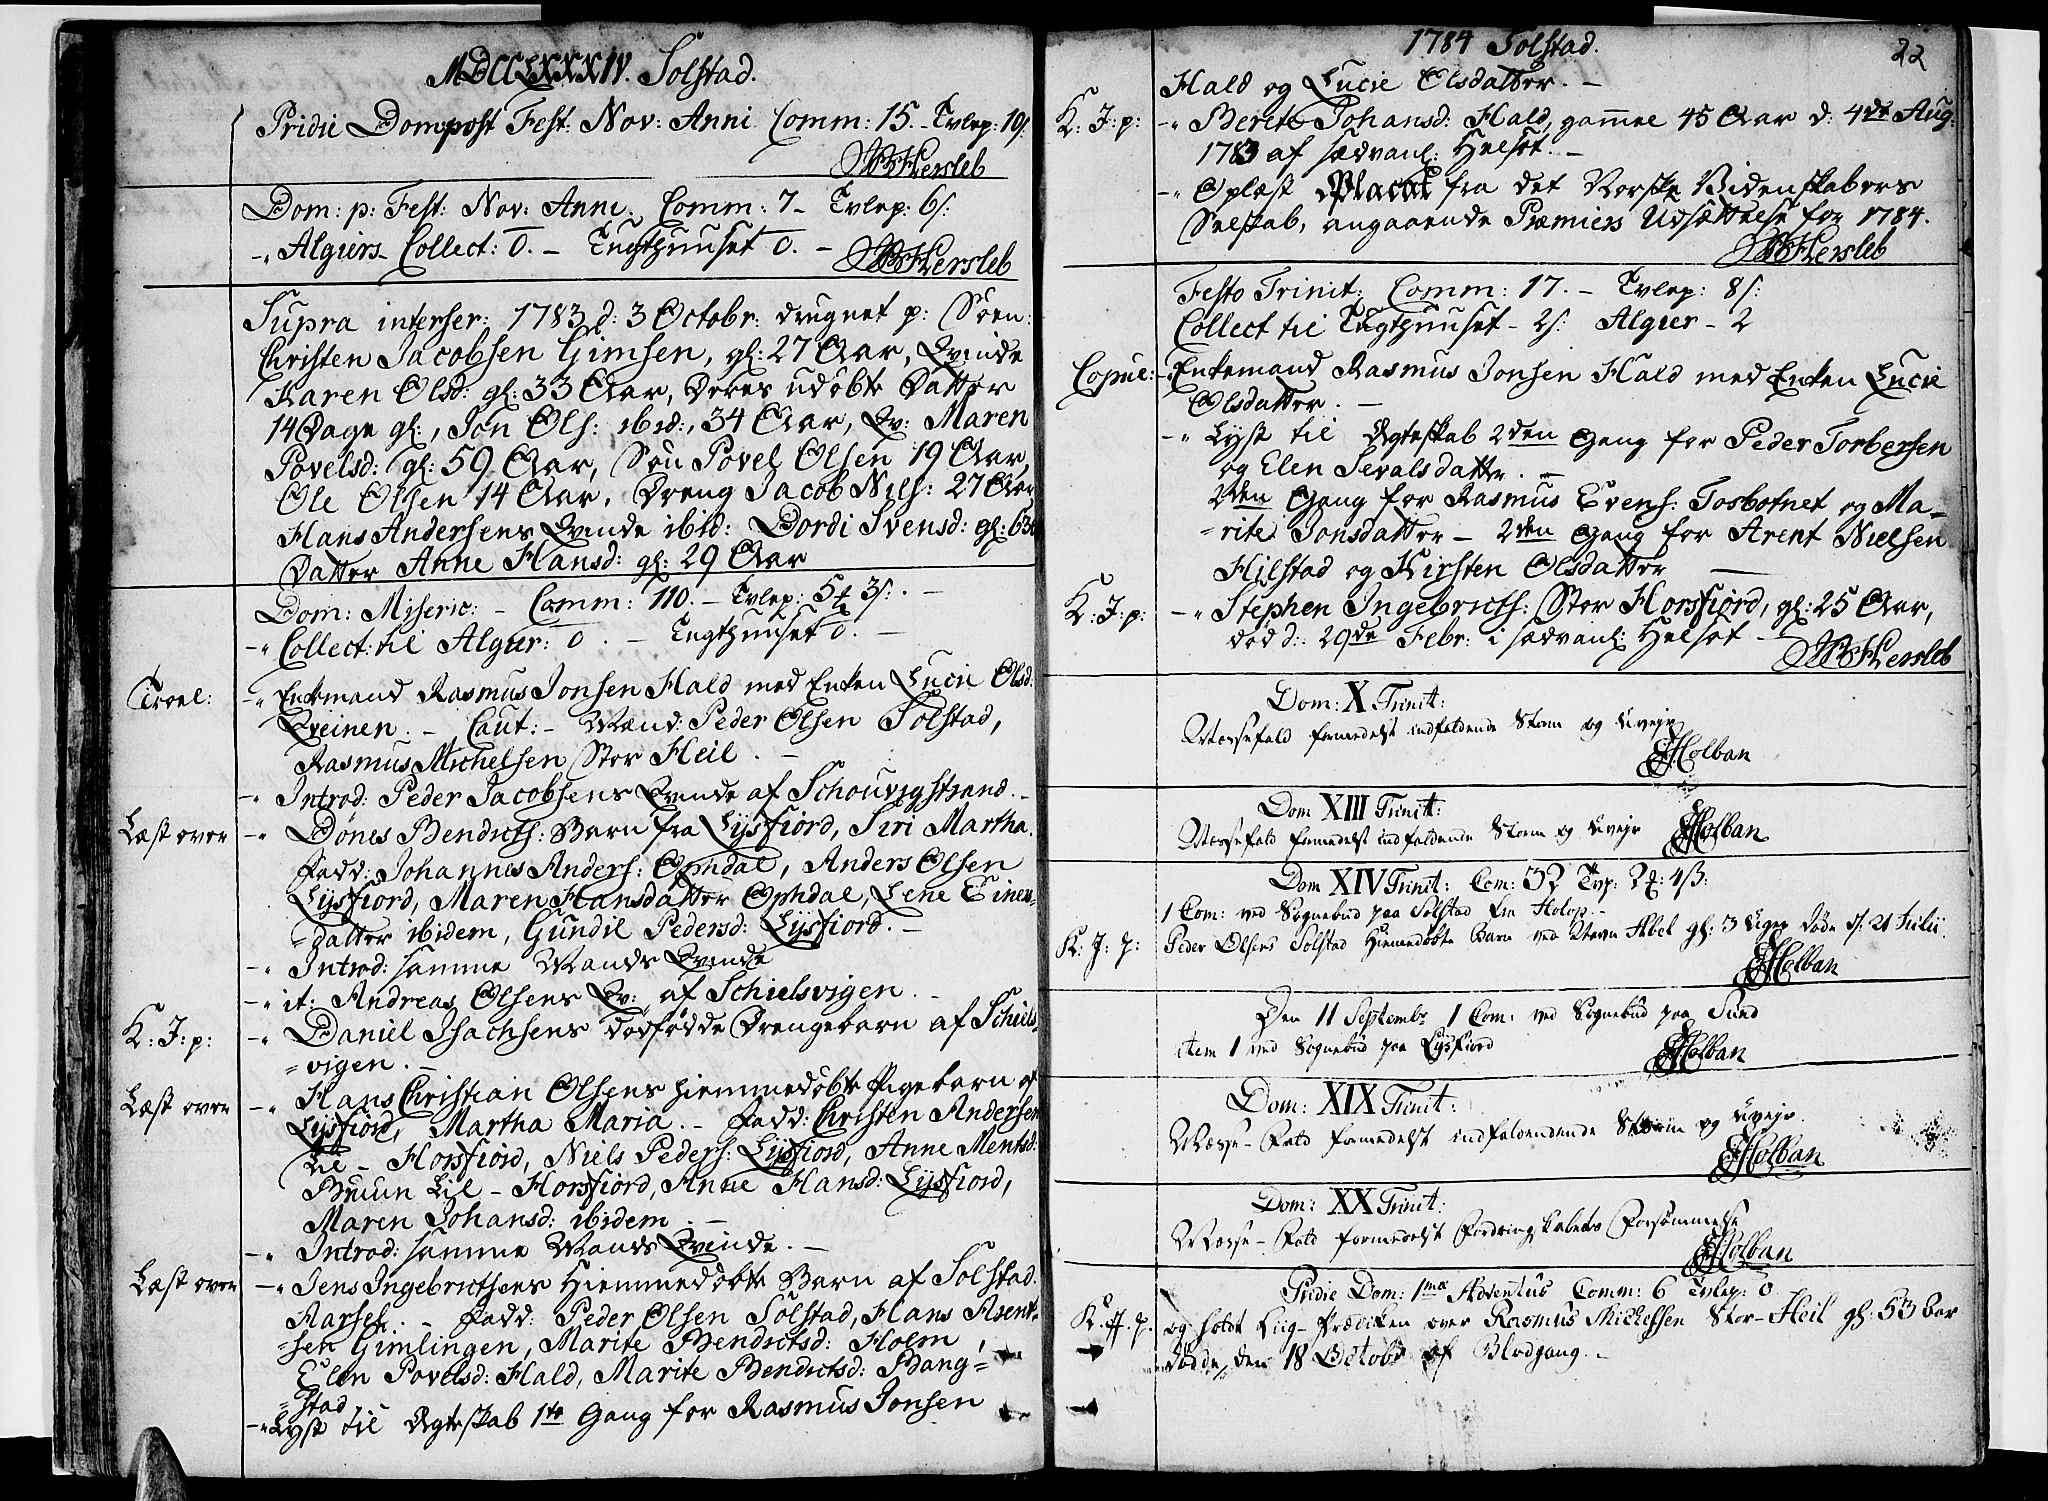 MDCCLXXXIV. Solstad.
Pridie Dom: post Fest: Nov: Anni Comm: 15. - Tvlep: 19s.
JB Hersleb
Dom: p: Fest: Nov: Anni. Comm: 7 - Tvlep: 6s:
-" Algiers Collect: 0. - Tugthuuset 0. -
JB Hersleb
Supra interser: 1783 d: 3 Octobr: drugnet p: Søen:
Christen Jacobsen Gimsen, gl: 27 Aar, Qvinde
Karen Olsd: gl: 33 Aar, Deres udøbte Datter
14 Dage gl:, Jon Ols: ibid:, 34 Aar, Qv: Maren
Povelsd: gl: 59 Aar, Søn Povel Olsen 19 Aar,
Ole Olsen 14 Aar, Dreng Jacob Nils: 27 Aar
Hans Andersens Qvinde ibid: Dordi Svensd: gl: 63
Datter Anne Hansd: gl: 29 Aar
Dom: Miseric: - Comm: 110. - Tvlep: 5 ₰ 3s: -
-" Collect: til Algier: 0. - Tugthuuset 0. -
Trol:
-" Enkemand Rasmus Jonsen Hald med Enken Lucie Olsd:
Qveinen. - Caut: - Mænd: Peder Olsen Solstad,
Rasmus Michelsen Stor Heil. -
-" Introd: Peder Jacobsens Qvinde af Schouvigstrand. -
Læst over
-" Dønes Bendicts: Barn fra Lysfiord, Siri Martha.
Fadd: Johannes Anders: Opdal, Anders Olsen
Lysfiord, Maren Hansdatter Ophdal, Lene Einers-
-datter ibidem, Gundil Pedersd: Lysfiord. -
-" Introd: samme Mands Qvinde
-" it: Andreas Olsens Qv: af Schielsvigen. -
K: J: p:
-" Daniel Isachsens dødfødde Drengebarn af Schiels-
-vigen. -
Læst over
-" Hans Christian Olsens hiemmedøbte Pigebarn af
Lysfiord, Martha Maria. - Fadd: Christen Andersen
Lil - Horsfiord, Niels Peders: Lysfiord, Anne Mentsd:
Bruun Lil - Horsfiord, Anne Hansd: Lysfiord,
Maren Johansd: ibidem. -
-" Introd: samme Mands Qvinde. -
Læst over
-" Jens Ingebrictsens Hiemmedøbte Barn af Solstad.
Aarsel. - Fadd: Peder Olsen Solstad, Hans Arent-
-sen Gimlingen, Marite Bendictsd: Holm,
Elen Povelsd: Hald, Marite Bendictsd: Bang-
-stad
-" Lyst til Ægteskab 1ste Gang for Rasmus Jonsen
1784 Solstad.
22
Hald og Lucie Olsdatter. -
K: J: p:
-" Berete Johansd: Hald, gamel 45 Aar d: 4de Aug:
1783 af sædvanl: Helsot. -
-" Oplæst Placat fra det Norske Videnskabers
Selskab, angaaende Præmiers Udsættelse for 1784.
JB Hersleb
Festo Trinit: Comm: 17. - Tvlep: 8s:
Collect til Tugthuuset - 2s: Algier - 2
Copul: -" Enkemand Rasmus Jonsen Hald med Enken Lucie
Olsdatter. -
-" Lyst til Ægteskab 2den Gang for Peder Torbersen
og Elen Sevalsdattr. -
2den Gang for Rasmus Evens: Tosbotnet og Ma-
-rite Jonsdatter - 2den Gang for Arent Nielsen
Hilstad og Kirsten Olsdatter
K: J: p:
-" Stephen Ingebricts: Stor Horsfiord, gl: 25 Aar,
død d: 29de Febr: i sædvanl: Helsot -
JB Hersleb
Dom: X Trinit:
Messefald formedelst indfaldende Storm og Uvejr
Holban
Dom XIII Trinit:
Messefald formedelst indfaldende Storm og Uvejr Holban
Dom XIV Trinit: Com: 32 Tvp: 2₰: 4ß:
1 Com: ved Sognebud paa Solstad fra Holop. -
K: J: p:
Peder Olsens Solstad Hiemedøbte Barn ved Navn Abel gl: 3 Uger døde d: 21 Julii.
Holban
Den 11 Septembr 1 Com: ved Sognebud paa Sund
item 1 ved Sognebud paa Lysfiord
Holban
Dom: XIX Trinit:
Messe-Fald formedelst indfaldendende Storm og Uvejr.
Holban
Dom: XX Trinit:
Messe-Fald formedelst Fordringskabets Forsømmelse
Holban
Pridie Dom: 1ma Adventus Comm: 6 Tvlep: 0
K. J. p.
og holdt Liig-Prædiken over Rasmus Michelsen Stor-Heil gl: 53 Aar
døde den 18 Octobr af Blodgang. -